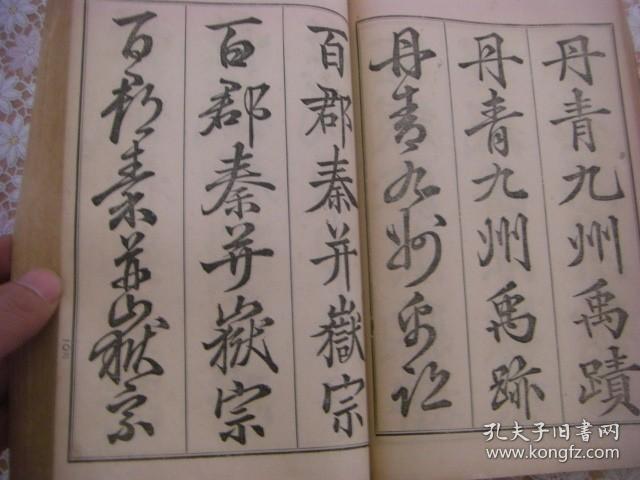 丹青九州禹蹟
丹青九州禹跡
丹青九州禹跡
百郡秦并嶽宗
百郡秦并嶽宗
百郡秦并嶽宗
108
孔夫子旧书网
www.kongfz.com